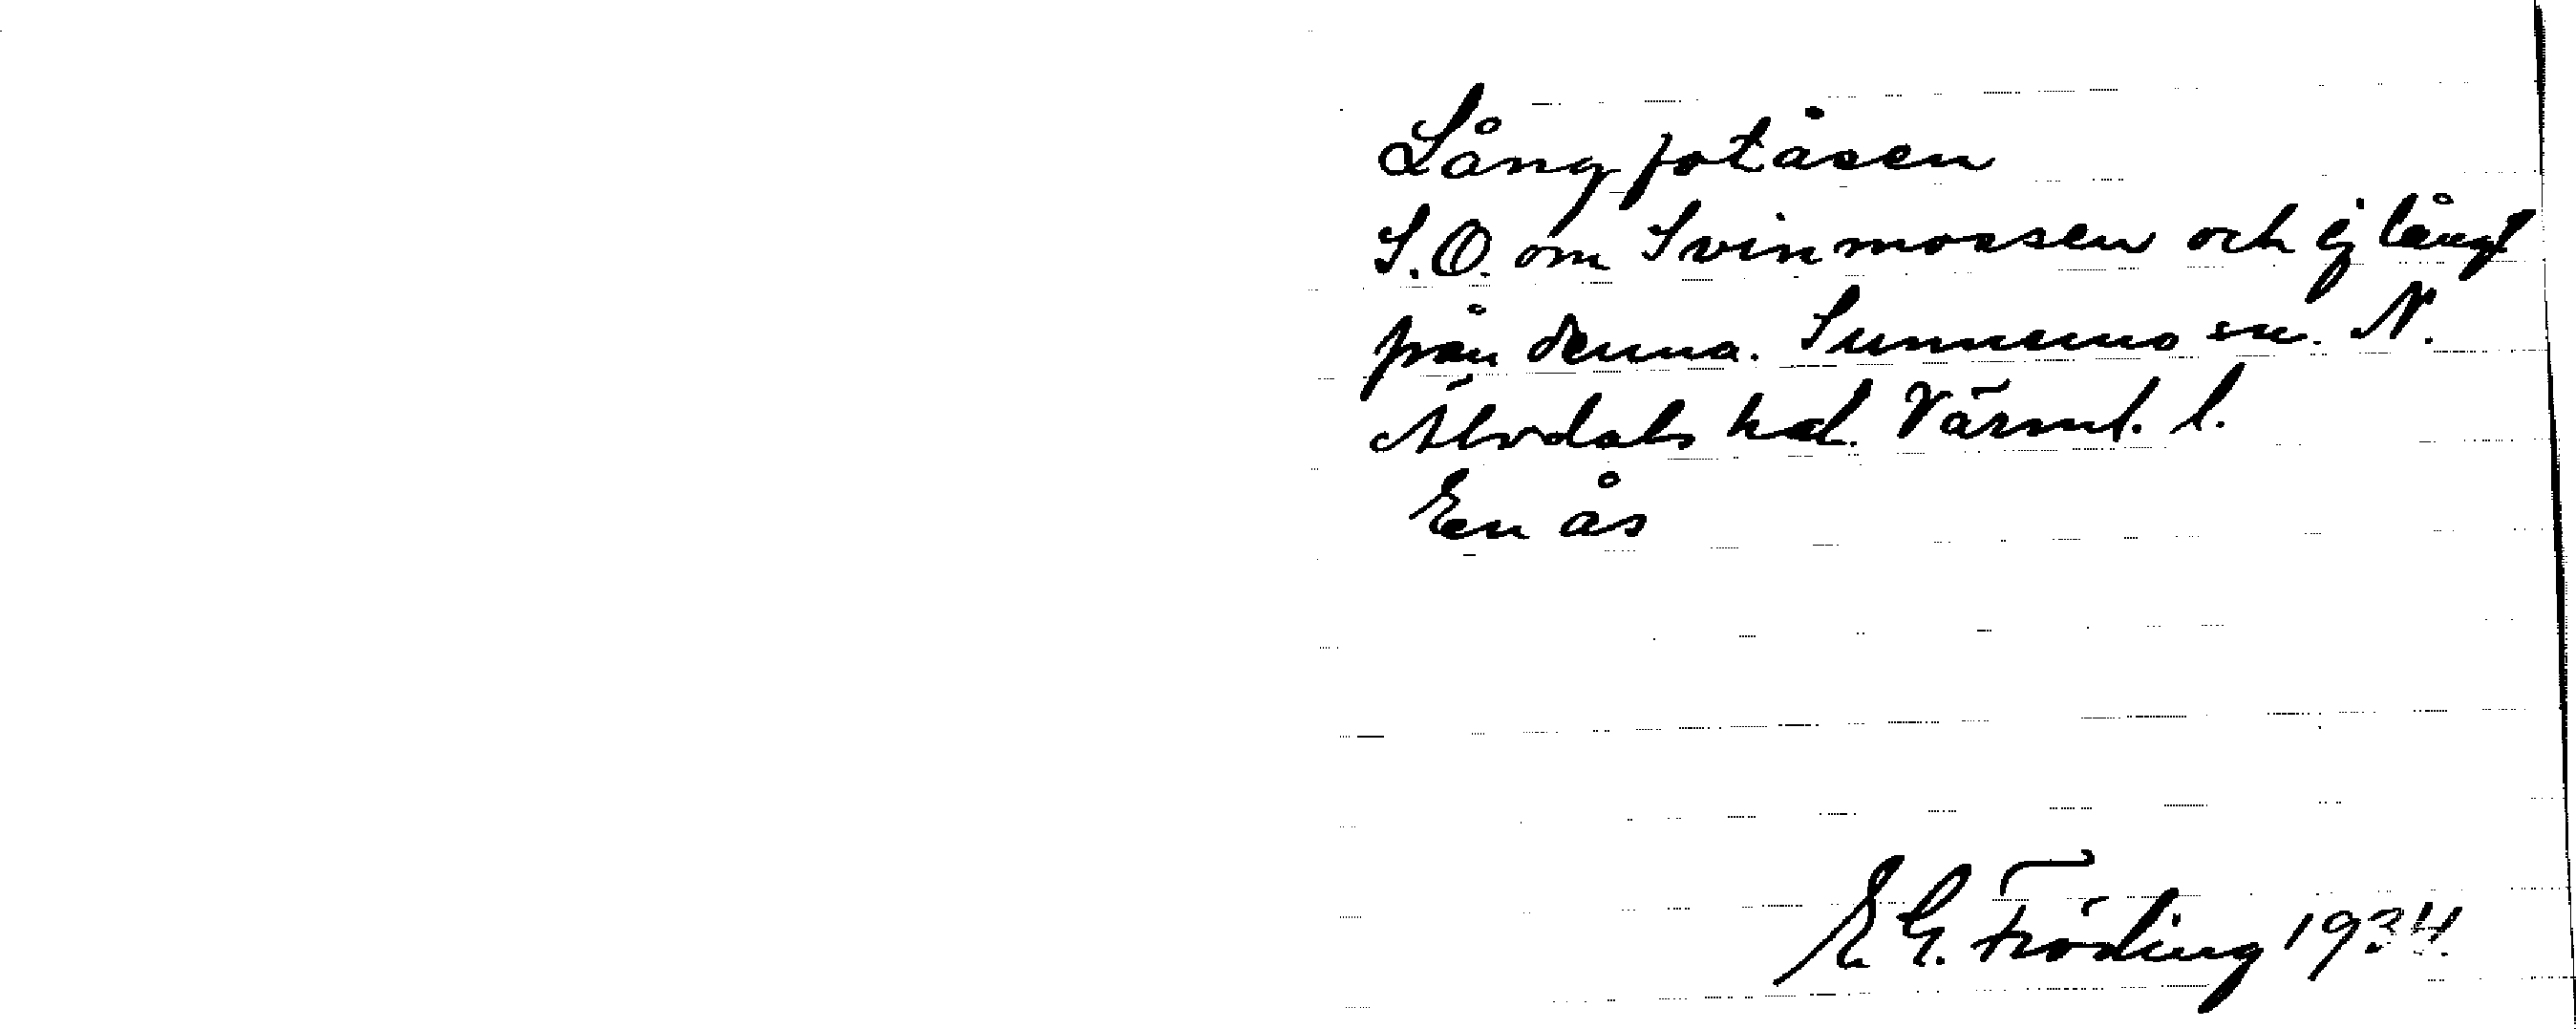 Långfotåsen
S.O. om Svinmossen och ej långt
från denna. Sunnemo sn. N.
Älvdals hd. Värml. l.
En ås
E G. Fröding 1934.